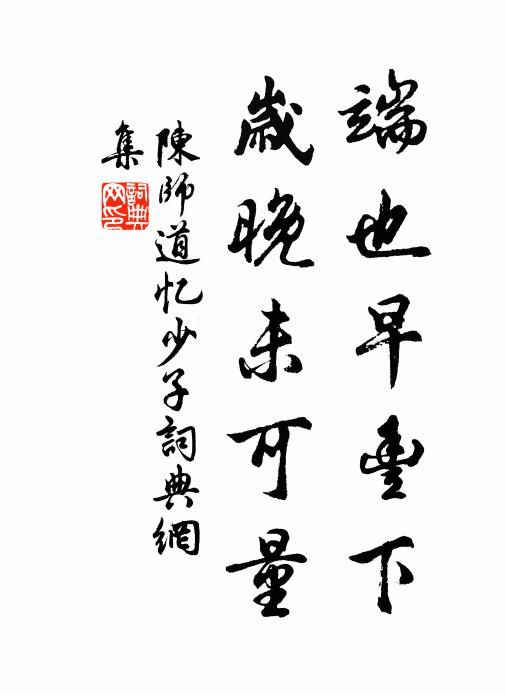 端也早豐下
歲晚未可量
陳師道忆少子詞典網
集
詞典
网印